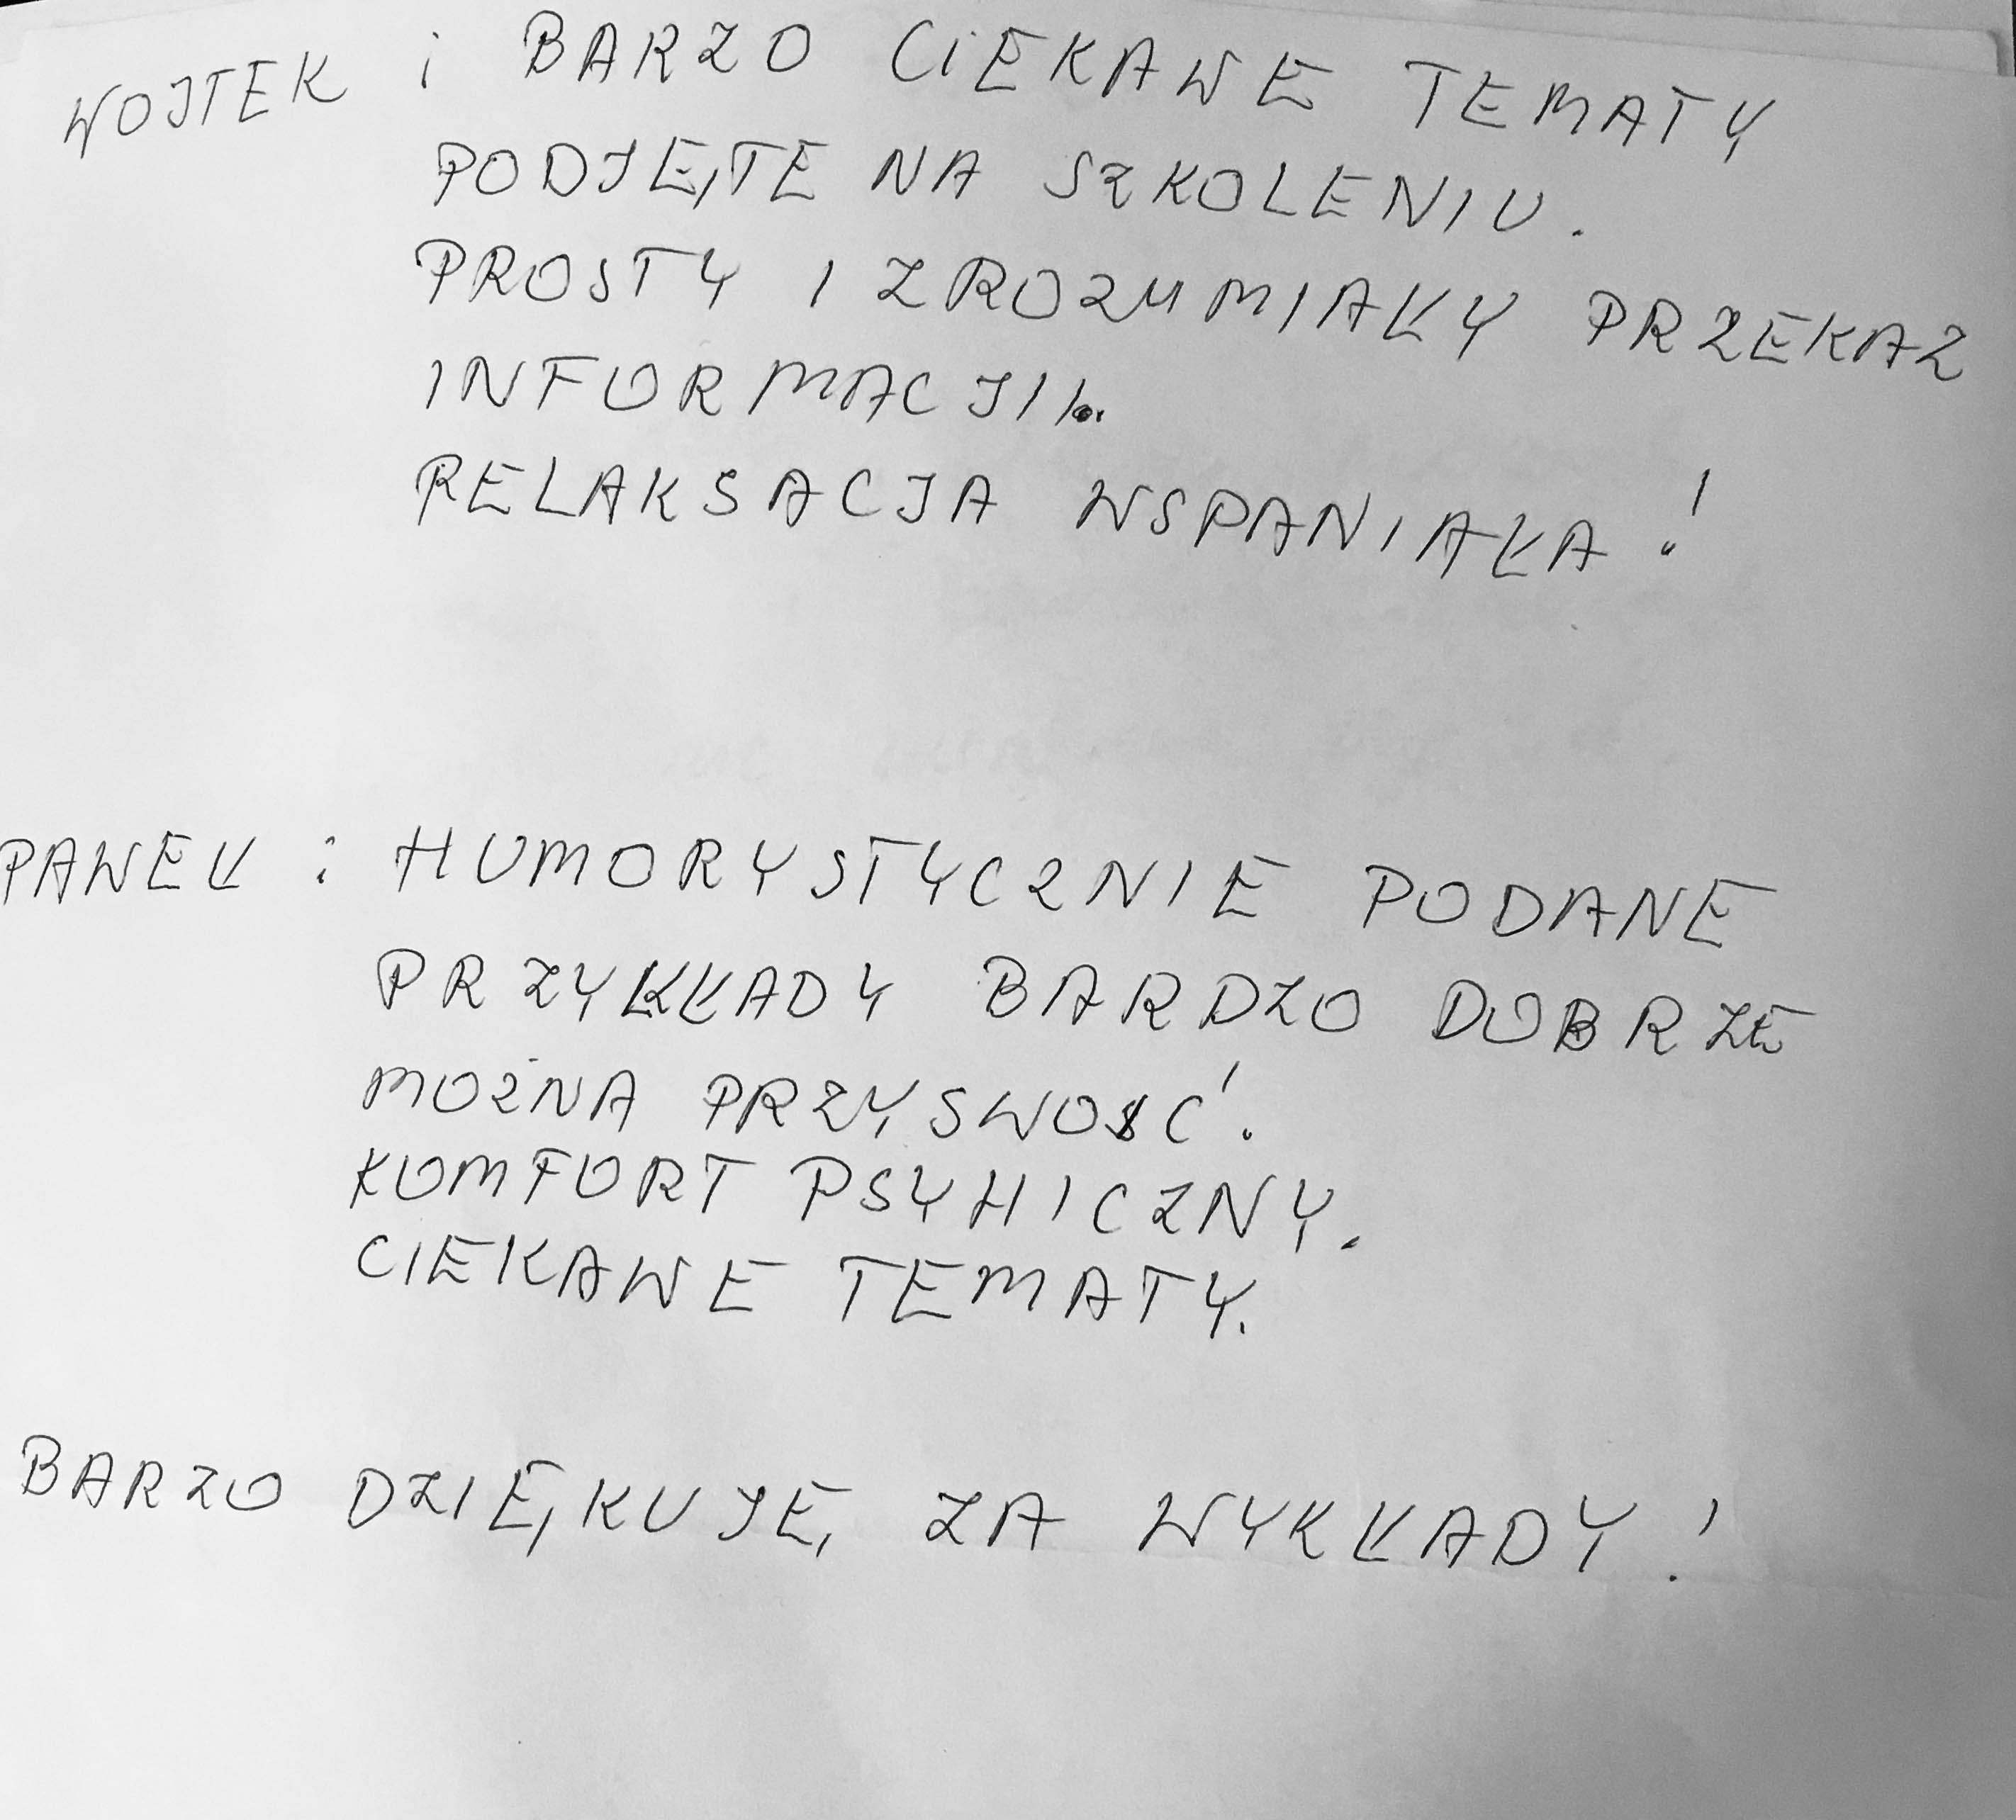 WOJTEK : BARZO CIEKAWE TEMATY
PODJĘTE NA SZKOLENIU.
PROSTY I ZROZUMIAŁY PRZEKAZ
INFORMACJI.
RELAKSACJA WSPANIAŁA!
PAWEŁ : HUMORYSTYCZNIE PODANE
PRZYKŁADY BARDZO DOBRZE
MOŻNA PRZYSWOIĆ.
KOMFORT PSYHICZNY.
CIEKAWE TEMATY.
BARZO DZIĘKUJĘ ZA WYKŁADY!